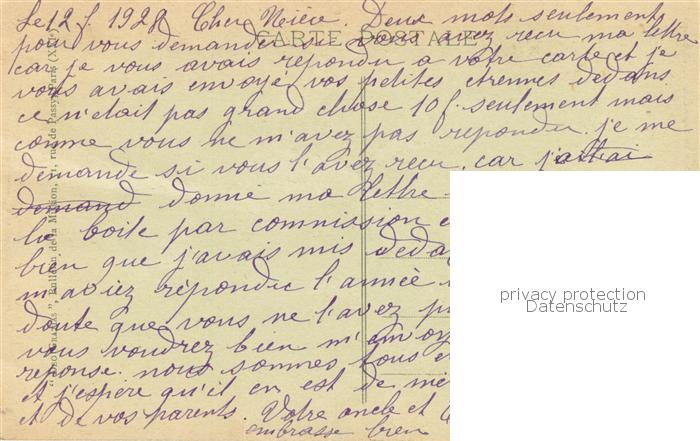 Le 12 f. 1928 Cher Nièce. Deux mots seulement
pour vous demander si vous avez reçu ma lettre
CARTE POSTALE
car je vous avais répondu a votre carte et je
vous avais envoyé vos petites etrennes dedans
ce n'etait pas grand chose 10 f. seulement mais
comme vous ne m'avez pas repondu. je me
demande si vous l'avez reçu. car j'
demand donné ma lettre
la boite par commission
bien que j'avais mis
m'aviez répondre l'année
doute que vous ne l'avez
vous voudrez bien
reponse. nous sommes tous
et j'espère qu'il en est de
et de vos parents. Votre oncle et
embrasse bien
privacy protection
Datenschutz